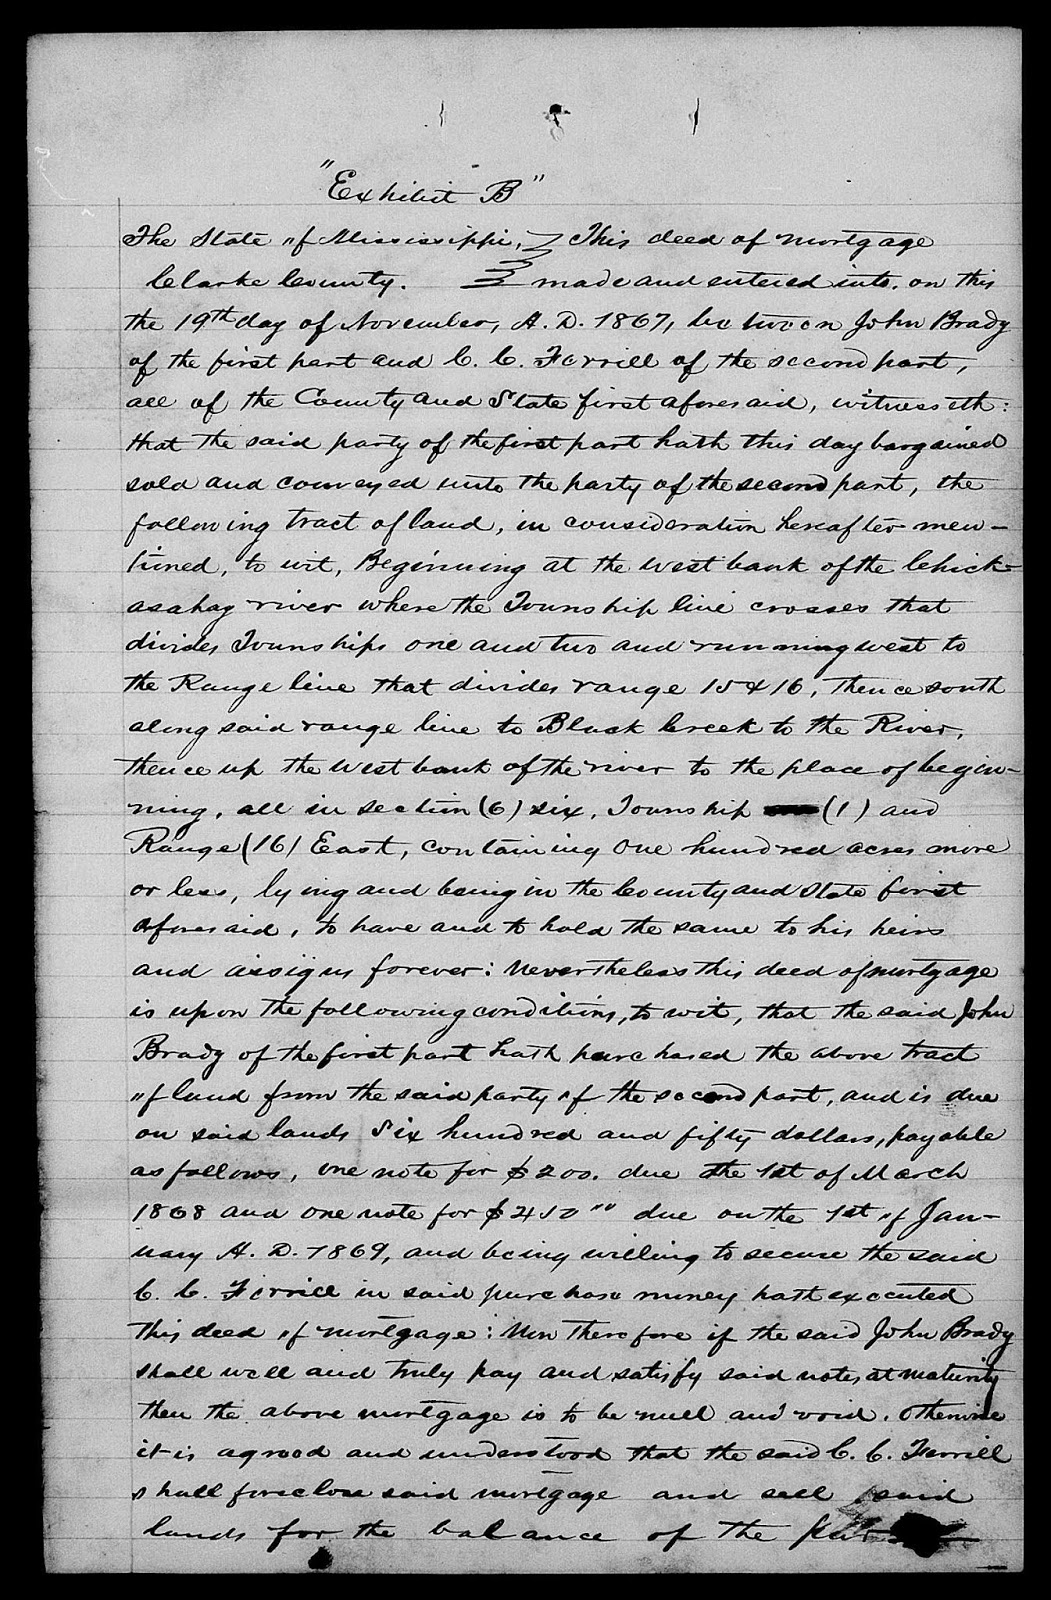 "Exhibit B"
The State of Mississippi, This deed of mortgage
Clarke County. made and entered into, on this
the 19th day of November, A. D. 1867, between John Brady
of the first part and C. C. Ferrill of the second part,
all of the County and State first aforesaid, witnesseth:
that the said party of the first part hath this day bargained
sold and conveyed unto the party of the second part, the
following tract of land, in consideration hereafter men-
tioned, to wit, Beginning at the west bank of the Chick-
asahay river where the Township line crosses that
divides Townships one and two and running west to
the Range line that divides range 15 & 16, thence south
along said range line to Black Creek to the River,
thence up the west bank of the river to the place of begin-
ning, all in section (6) six, Township (1) and
Range (16) East, containing one hundred acres more
or less, lying and being in the County and State first
aforesaid, to have and to hold the same to his heirs
and assigns forever: Nevertheless this deed of mortgage
is upon the following conditions, to wit, that the said John
Brady of the first part hath purchased the above tract
of land from the said party of the second part, and is due
on said lands Six hundred and fifty dollars, payable
as follows, one note for $200. due the 1st of March
1868 and one note for $450 "" due on the 1st of Jan-
uary A. D. 1869, and being willing to secure the said
C. C. Ferrill in said purchase money hath executed
this deed of mortgage: Now therefore if the said John Brady
shall well and truly pay and satisfy said notes at maturity
then the above mortgage is to be null and void. Otherwise
it is agreed and understood that the said C. C. Ferrill
shall foreclose said mortgage and sell said
lands for the balance of the